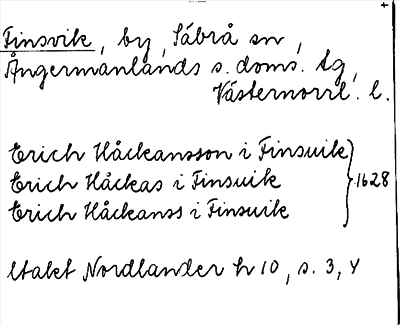 Finsvik, by, Säbrå sn,
Ångermanlands s. doms. tg,
Västernorrl. l.
Erich Håckansson i Finsuik
Erich Håckas i Finsuik } 1628
Erich Håckanss i Finsuik
Utalet Nordlander h 10, s. 3, 4